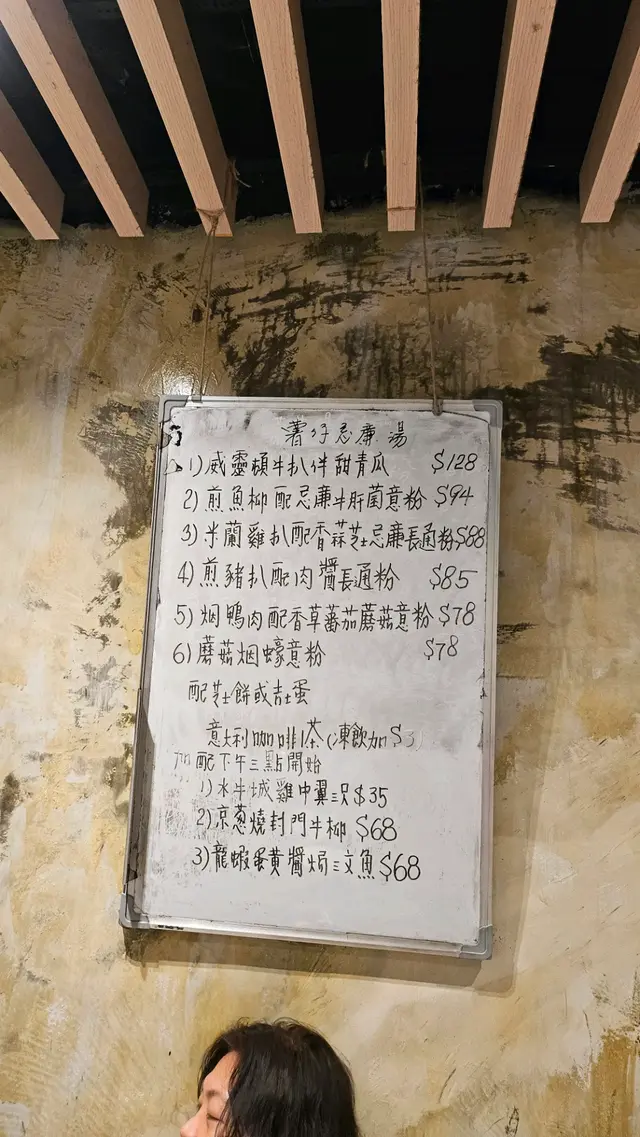 薯仔忌廉湯
1) 威靈頓牛扒伴甜青瓜 $128
2) 煎魚柳配忌廉牛肝菌意粉 $94
3) 米蘭雞扒配香蒜芝士忌廉長通粉 $88
4) 煎豬扒配肉醬長通粉 $85
5) 烟鴨肉配香草蕃茄蘑菇意粉 $78
6) 蘑菇烟蠔意粉 $78
配芝士餅或吉士蛋
意大利咖啡|茶(凍飲加$3)
加配下午三點開始
1) 水牛城雞中翼三只 $35
2) 京葱燒封門牛柳 $68
3) 龍蝦蛋黃醬焗三文魚 $68